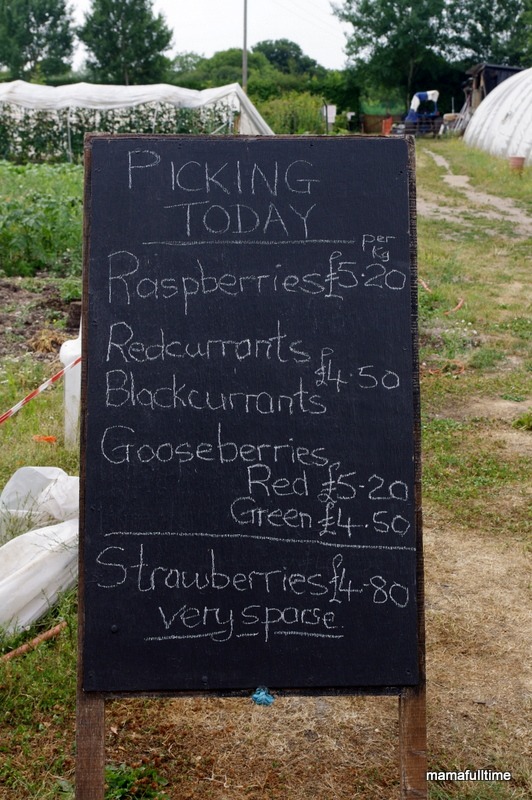 PICKING
TODAY
per
Kg
Raspberries £5.20
Redcurrants
£4.50
Blackcurrants
Gooseberries
Red £5-20
Green £4.50
Strawberries £4-80
very sparse
mamafulltime